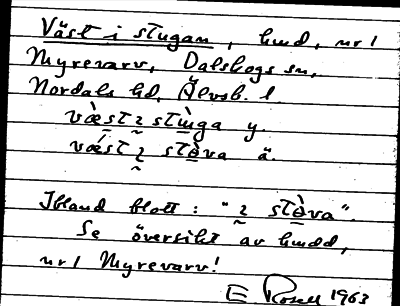 Väst i stugan, hmd, nr 1
Myrevarv, Dalskogs sn,
Nordals hd, Älvsb. l.
væ̀st ɩ stùnga y.
vǽst ɩ stɵ̀va ä.
Ibland blott: "ɩ stɵ̀va".
Se översikt av hmdd,
nr 1 Myrevarv!
E Rosell 1963